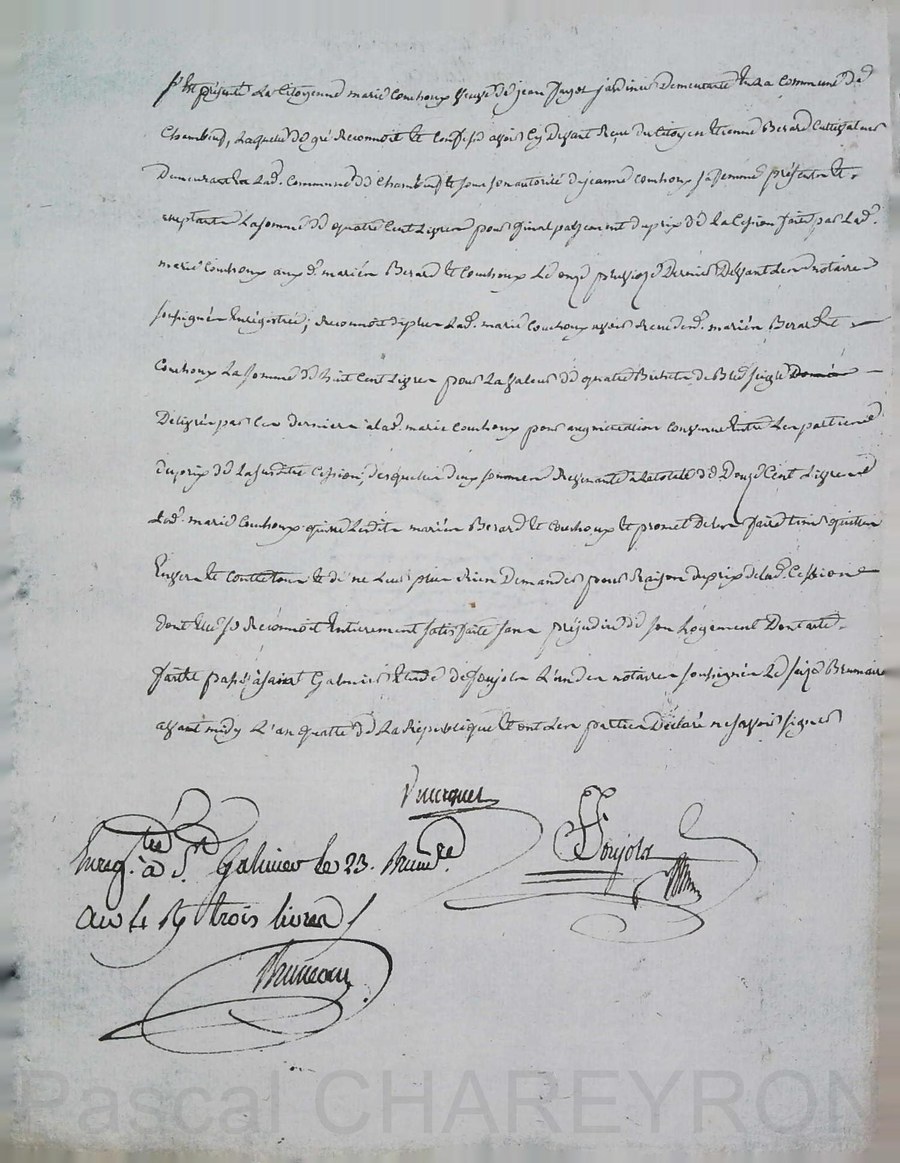 fut présente La Citoyenne marie Couhoux Veuve de jean jardinier Demeurante En La Commune de
Chambeuf, Laquelle de gré Reconnoit Et Confesse avoir Cy Devant Reçu du Citoyen Etienne Berard Cultivateur
Demeurant En Lad. Commune de Chambeuf Et sous son autorité de jeanne Couhoux sa femme présente Et
acceptante La somme de quatre Cent Livres pour final payement du prix de La Cession faite par Lad.
marie Couhoux auxd. mariés Berard Et Couhoux Le onze pluviose Dernier Devant Les notaires
soussignés Enregistrée; Reconnoit de plus Lad. marie Couhoux avoir Reçu desd. mariés Berard Et
Couhoux La somme de huit Cent Livres pour La Valeur de quatre Bichets de Bled seigle
Délivrés par Ces derniers a lad. marie Couhoux pour augmentation Convenue Entre Les parties
du prix de La susditte Cession, desquelles deux sommes Revenante a La totale de Douze Cent Livres
Lad. marie Couhoux quitte Lesdits mariés Berard Et Couhoux Et promet De Les faire tenir quittes
Envers Et Contre tous Et de ne Leur plus Rien Demander pour Raison du prix de lad. Cession
dont Elle se Reconnoit Entierement satisfaite sans préjudice de son Logement Dont acte
fait Et passé a saint Galmier Etude de Soujola L'un des notaires soussignés Le seize Brumaire
avant midy L'an quatre de La République Et ont Les parties Déclaré ne savoir signer
Soujola
Enregtré à St Galmier le 23. Brumre.
an 4 trois livres
Bruneau
Pascal CHAREYRON